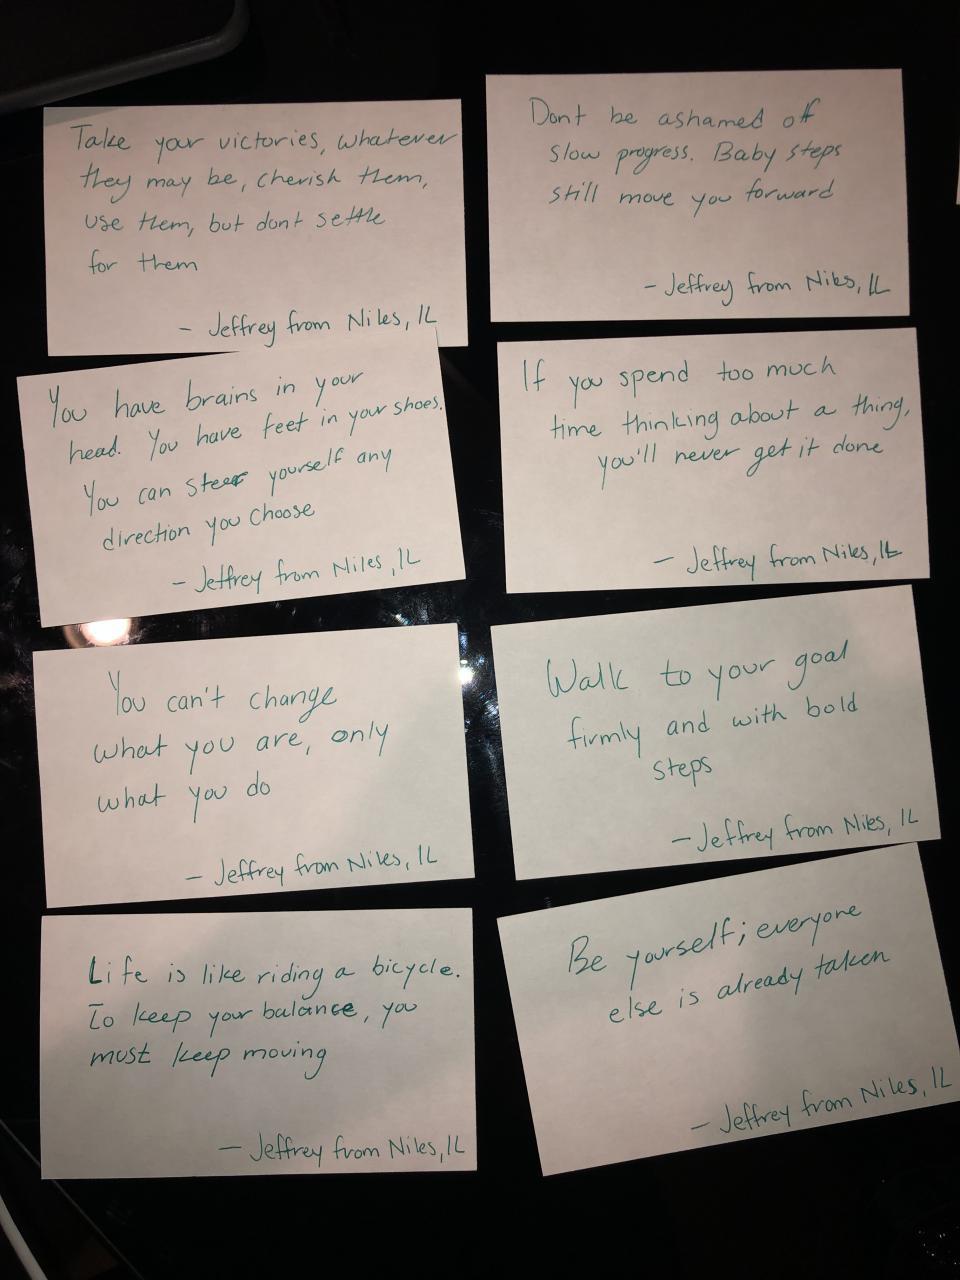 Take your victories, whatever
they may be, cherish them,
use them, but dont settle
for them
- Jeffrey from Niles, IL
Dont be ashamed off
slow progress. Baby steps
still move you forward
- Jeffrey from Niles, IL
You have brains in your
head. You have feet in your shoes.
You can steer yourself any
direction you choose
- Jeffrey from Niles, IL
If you spend too much
time thinking about a thing,
you'll never get it done
- Jeffrey from Niles, IL
You can't change
what you are, only
what you do
- Jeffrey from Niles, IL
Walk to your goal
firmly and with bold
steps
- Jeffrey from Niles, IL
Life is like riding a bicycle.
To keep your balance, you
must keep moving
- Jeffrey from Niles, IL
Be yourself; everyone
else is already taken
- Jeffrey from Niles, IL